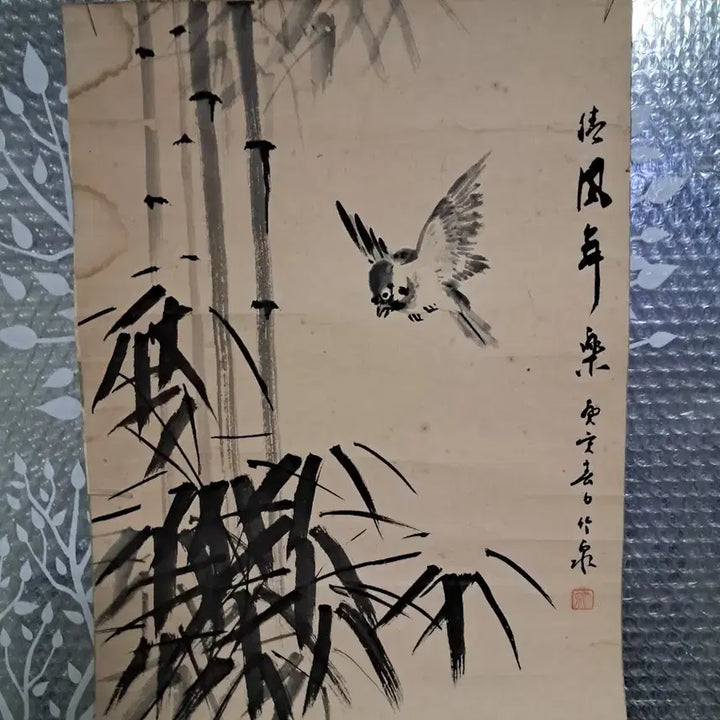 清風年樂 庚寅春日 竹泉